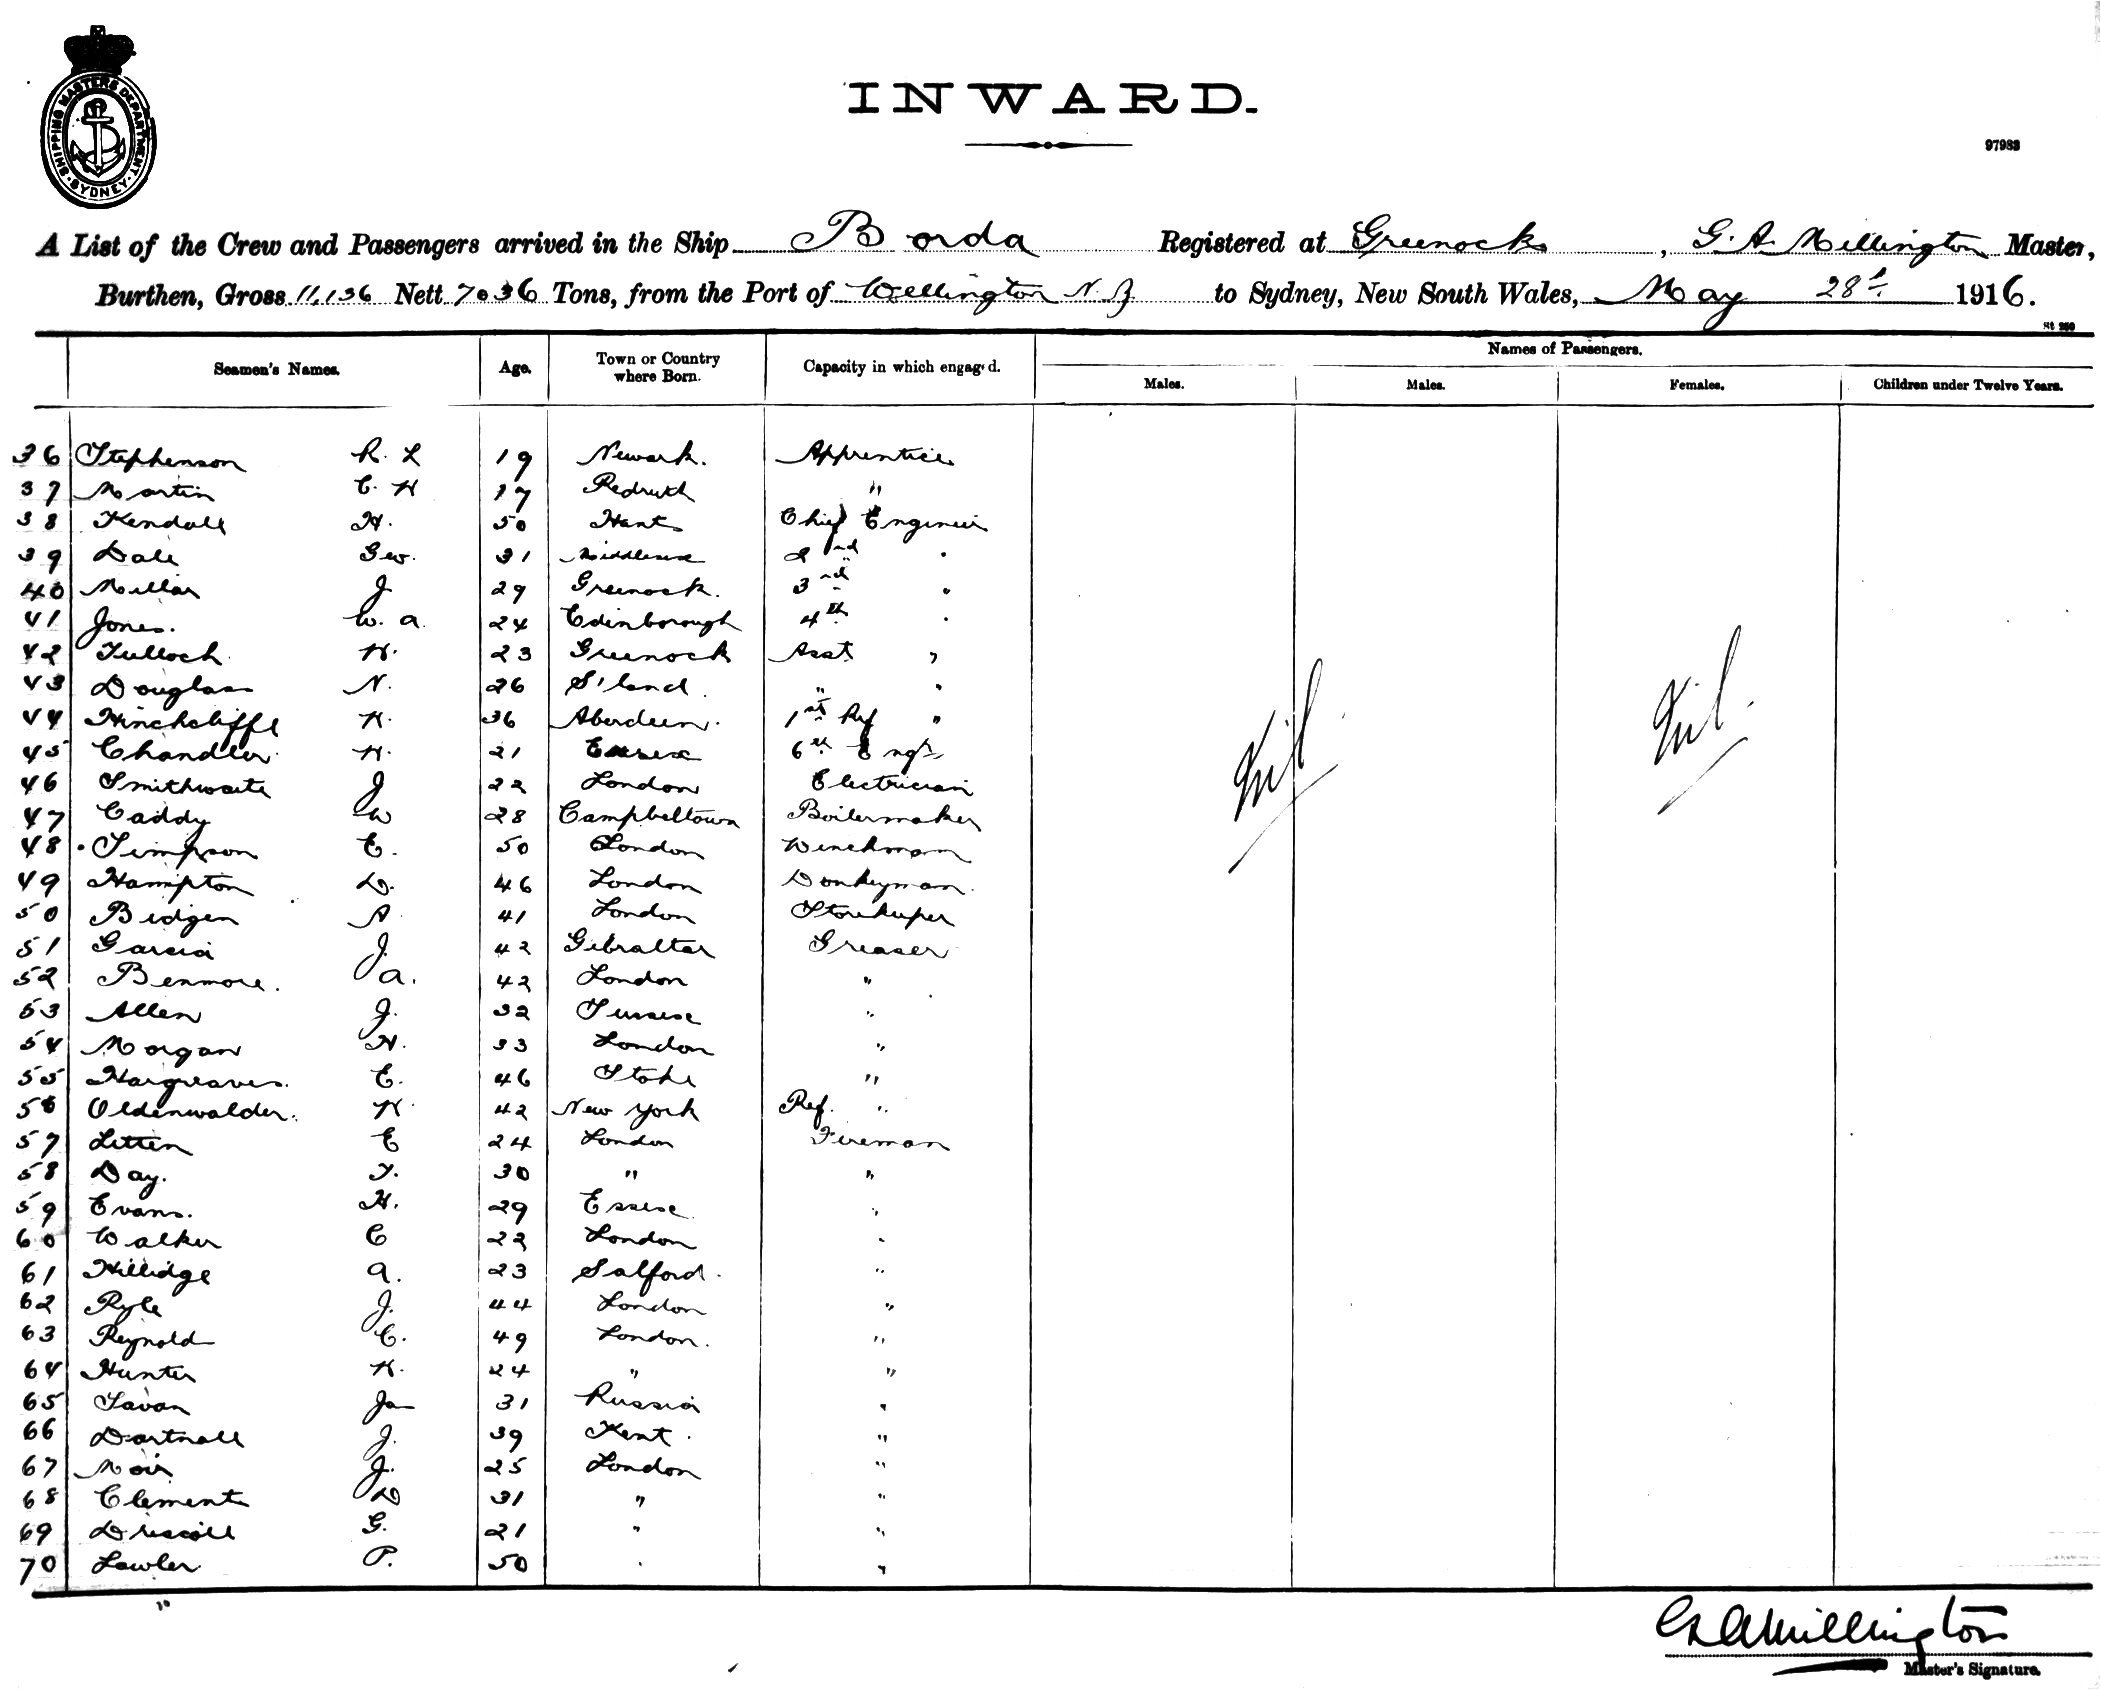 SHIPPING MASTERS DEPARTMENT. SYDNEY.
INWARD.
97983
A List of the Crew and Passengers arrived in the Ship Borda Registered at Greenock, G. A. Millington Master,
Burthen, Gross 11,136 Nett 7036 Tons, from the Port of Wellington N.Z to Sydney, New South Wales, May 28th 1916.
St 250
Names of Passengers.
Seamen's Names. Age. Town or Country where Born. Capacity in which engaged. Males. Males. Females. Children under Twelve Years.
36 Stephenson R. L 19 Newark. Apprentice
37 Martin C. H 17 Redruth "
38 Kendall H. 50 Hants Chief Engineer
39 Dale G w. 31 Middlesex 2nd "
40 Millar J 29 Greenock. 3rd "
41 Jones. W. a. 24 Edinborough 4th "
42 Tulloch H. 23 Greenock Asst "
43 Douglass N. 26 S'land. " "
44 Hinchcliffe H. 36 Aberdeen. 1st Ref "
45 Chandler H. 21 Essex 6th Engr
46 Smithwaite J 22 London Electrician
47 Caddy W 28 Campbeltown Boilermaker
48 Simpson E. 50 London Winchman
49 Hampton D. 46 London Donkeyman.
50 Bidgen A 41 London Storekeeper
51 Garcia J. 42 Gibraltar Greaser
52 Benmore. a. 42 London "
53 Allen J. 32 Sussex "
54 Morgan H. 33 London "
55 Hargreaves. E. 46 Stoke "
56 Oldenwalder. H 42 New York Ref. "
57 Litten E 24 London Fireman
58 Day. T. 30 " "
59 Evans. H. 29 Essex "
60 Walker C 22 London "
61 Hillidge a. 23 Salford. "
62 Ryle J. 44 London "
63 Reynold C. 49 London. "
64 Hunter H. 24 " "
65 Savan Jas 31 Russia "
66 Dartnall J. 39 Kent. "
67 Moir J. 25 London "
68 Clement D 31 " "
69 Driscoll G. 21 " "
70 Lawler P. 50 " "
Nil
Nil
G A Millington
Master's Signature.